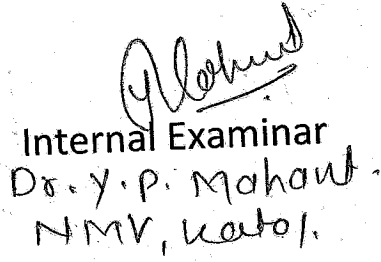 Internal Examinar
Dr. Y. P. Mahant.
NMV, Katol.